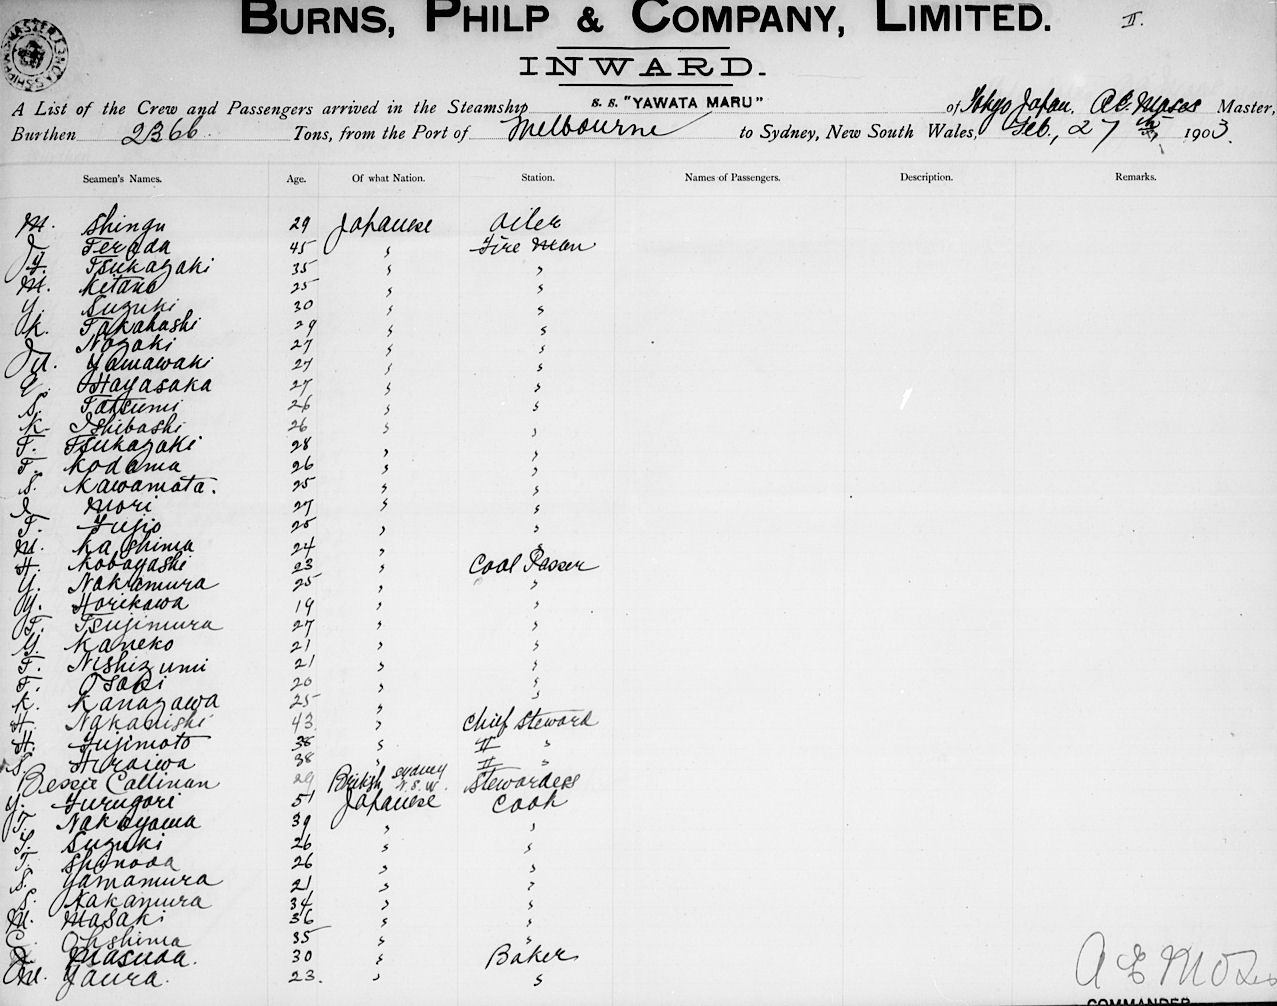 BURNS, PHILP & COMPANY, LIMITED. II.
INWARD.
A List of the Crew and Passengers arrived in the Steamship S. S. "YAWATA MARU" of Tokyo Japan, A.E. Moses Master,
Burthen 2366 Tons, from the Port of Melbourne to Sydney, New South Wales, Feb, 27th 1903.
Seamen's Names. Age. Of what Nation. Station. Names of Passengers. Description. Remarks.
M. Shingu 29 Japanese Oiler
Terada 45 " Fire Man
Y. Tsukazaki 35 " "
M. Kitano 25 " "
Y. Suzuki 30 " "
K. Takahashi 29 " "
Nozaki 27 " "
Yamawaki 27 " "
Hayasaka 27 " "
S. Tatsumi 26 " "
K. Ishibashi 26 " "
T. Tsukazaki 28 " "
T. Kodama 26 " "
S. Kawamata. 25 " "
I. Mori 27 " "
T. Fujio 25 " "
M. Kashima 24 " "
H. Kobayashi 23 " Coal Passer
Y. Nakamura 25 " "
Y. Horikawa 19 " "
T. Tsujimura 27 " "
Y. Kaneko 21 " "
T. Nishizumi 21 " "
T. Osaki 20 " "
K. Kanazawa 25 " "
H. Nakanishi 43 " Chief Steward
H. Fujimoto 38 " II "
S. Hiraiwa 38 " II "
Bessie Callinan 29 British Sydney N.S.W. Stewardess
Y. Furugori 51 Japanese Cook
T. Nakayama 39 " "
Suzuki 26 " "
T. Shinoda 26 " "
S. Yamamura 21 " "
S. Nakamura 34 " "
M. Masaki 36 " "
Ohshima 35 " "
Masuda. 30 " Baker
M. Yaura. 23. " "
A E Moses
COMMANDER